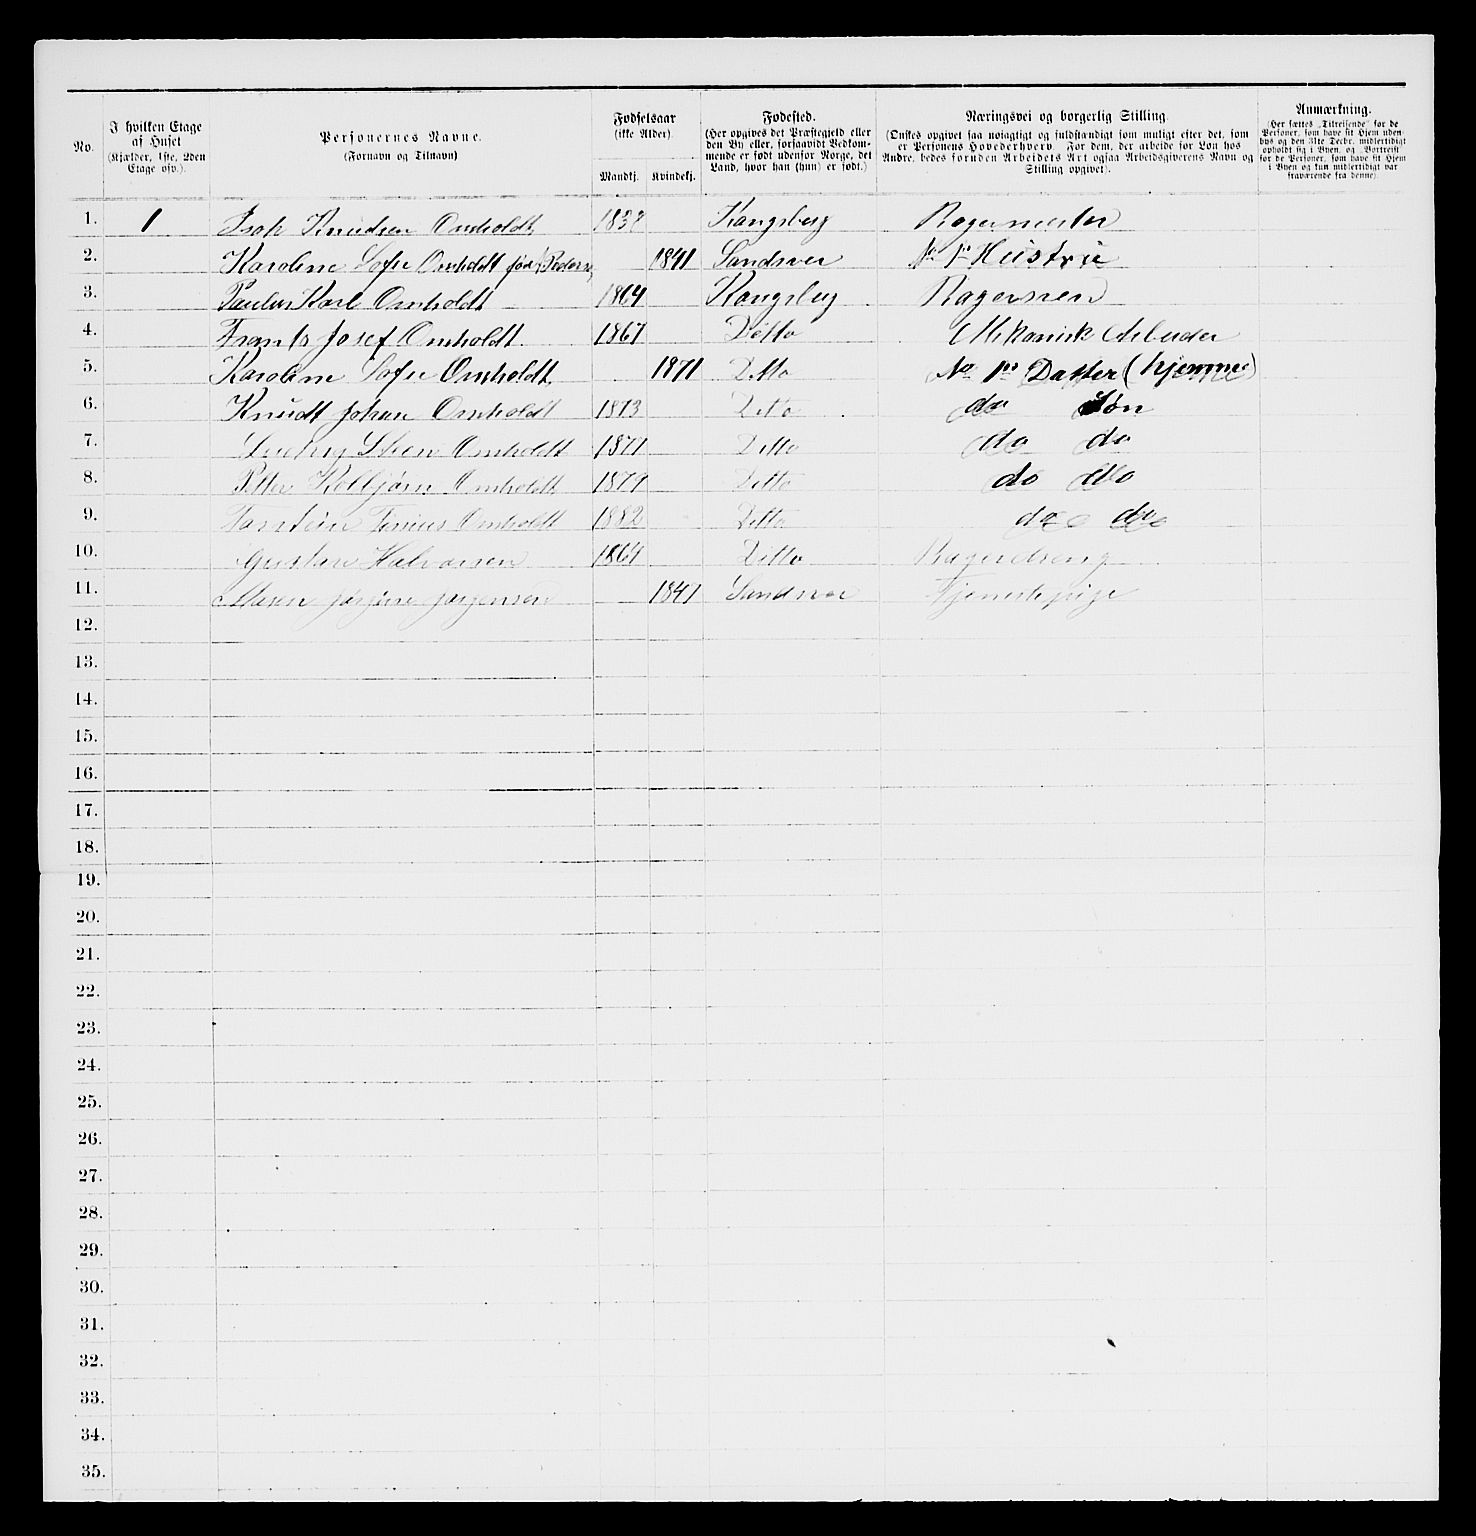 No.
I hvilken Etage af Huset (Kjælder, 1ste, 2den Etage osv.).
Personernes Navne. (Fornavn og Tilnavn)
Fødselsaar (ikke Alder). Mandkj. Kvindekj.
Fødested. (Her opgives det Præstegjeld eller den By eller, forsaavidt Vedkommende er født udenfor Norge, det Land, hvor han (hun) er født.)
Næringsvei og borgerlig Stilling. (Ønskes opgivet saa nøiagtigt og fuldstændigt som muligt efter det, som er Personens Hovederhverv. For dem, der arbeide for Løn hos Andre, bedes foruden Arbeidets Art ogsaa Arbeidsgiverens Navn og Stilling opgivet).
Anmærkning. (Her sættes "Tilreisende" for de Personer, som have sit Hjem udenbys og den 31te Decbr. midlertidigt opholdt sig i Byen, og "Bortreist" for de Personer, som have sit Hjem i Byen og kun midlertidigt var fraværende fra denne).
1. 1 Isak Knudsen Omholdt Kongsberg Bagermester
2. Karoline Sofie Omholdt fød Pedersen 1841 Sandsver No 1s Hustru
3. Paulus Karl Omholdt 1864 Kongsberg Bagersven
4. Frants Josef Omholdt. 1867 Ditto Mekanisk Arbeider
5. Karoline Sofie Omholdt 1871 Ditto No 1s Datter (hjemme)
6. Knudt Johan Omholdt 1873 Ditto do Søn
7. Ludvig Omholdt 1877 Ditto do do
8. Petter Kolbjørn Omholdt 1879 Ditto do do
9. Torstein Omholdt 1882 Ditto do do
10. Gustav Halvorsen 1864 Ditto Bagerdreng
11. Maren Jørgine Jørgensen 1847 Sandsver Tjenestepige
12.
13.
14.
15.
16.
17.
18.
19.
20.
21.
22.
23.
24.
25.
26.
27.
28.
29.
30.
31.
32.
33.
34.
35.